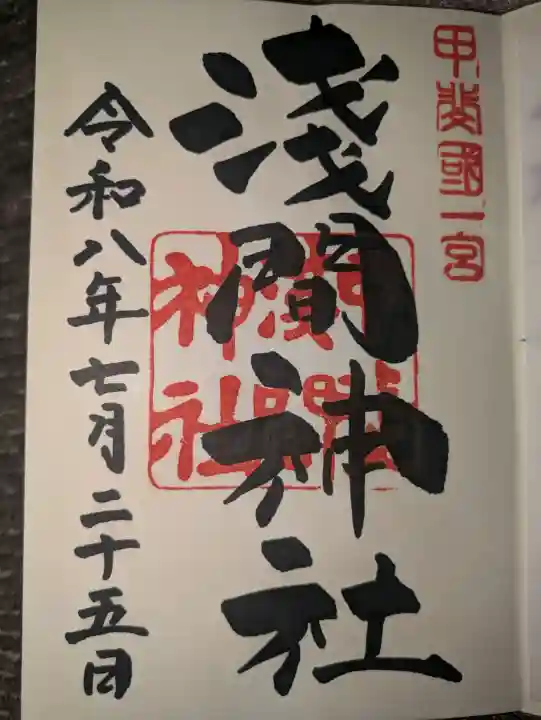 甲斐國一宮
淺間神社
令和八年七月二十五日